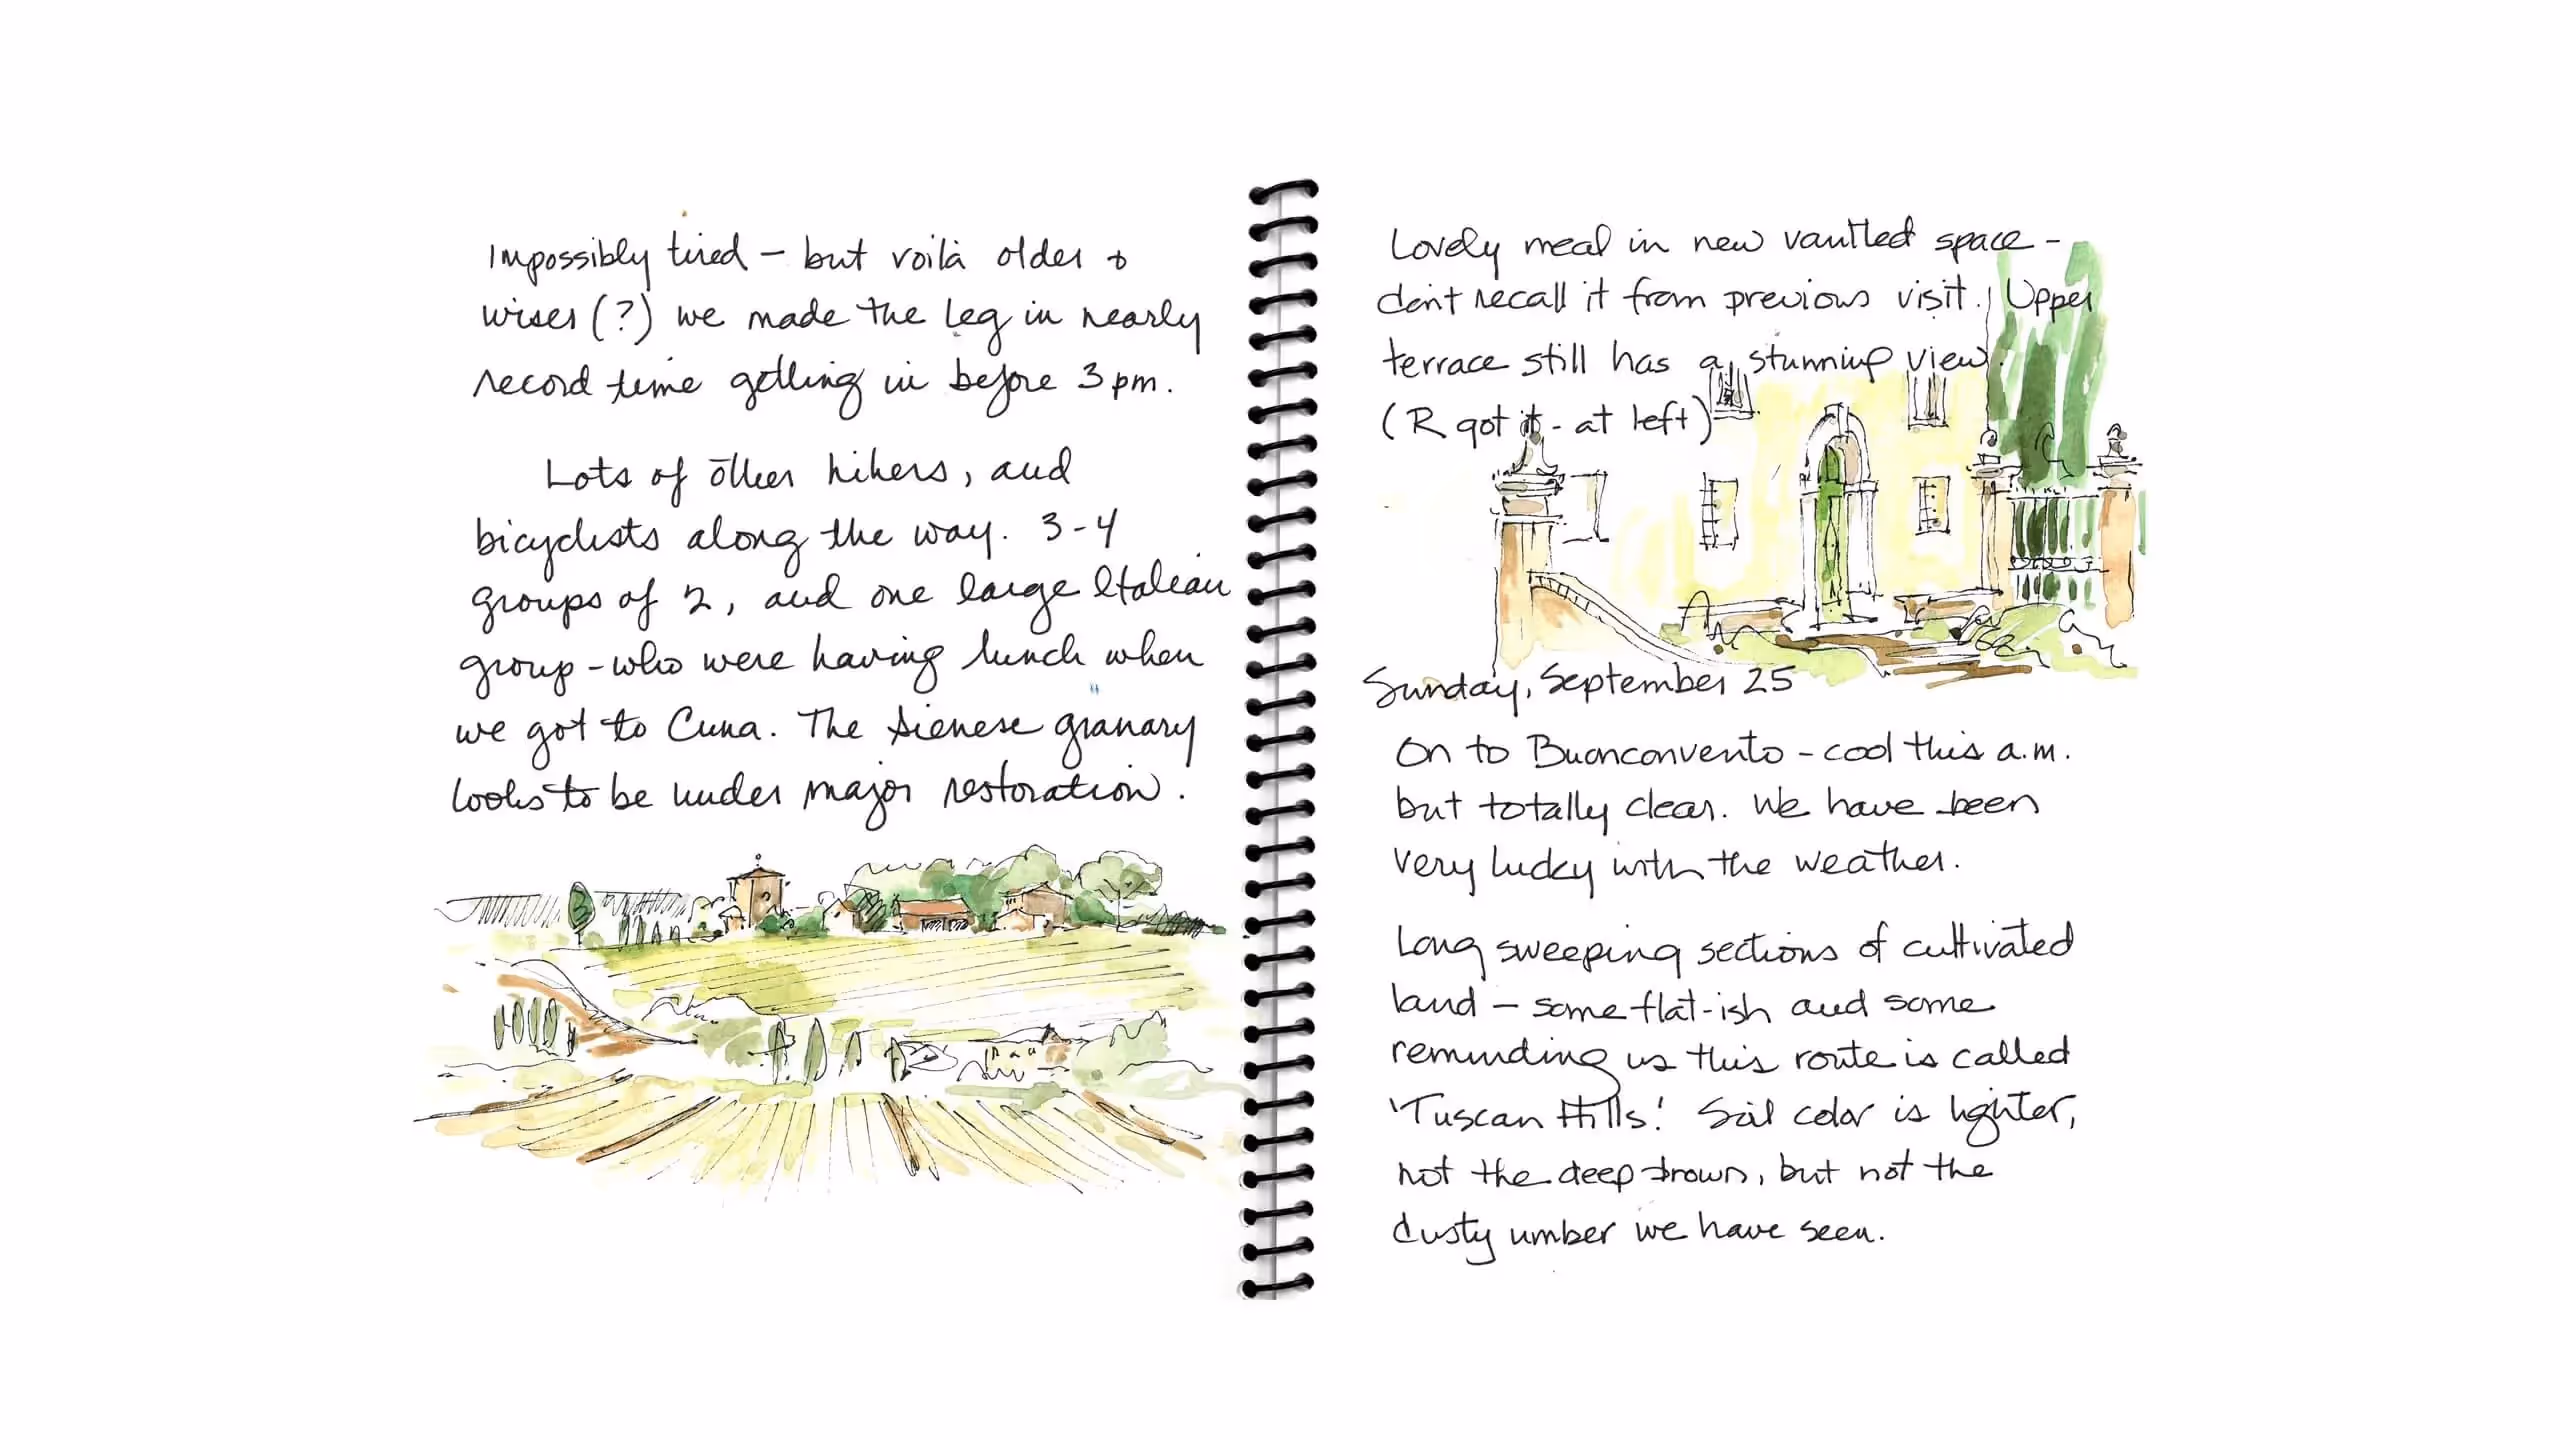 Impossibly tired – but voilà older +
wiser (?) we made the leg in nearly
record time getting in before 3 pm.
Lots of other hikers, and
bicyclists along the way. 3-4
groups of 2, and one large Italian
group - who were having lunch when
we got to Cuna. The Sienese granary
looks to be under major restoration.
Lovely meal in new vaulted space –
don't recall it from previous visit. Upper
terrace still has a stunning view.
(R got it - at left)
Sunday, September 25
On to Buonconvento – cool this a.m.
but totally clear. We have been
very lucky with the weather.
Long sweeping sections of cultivated
land – some flat-ish and some
reminding us this route is called
'Tuscan Hills'. Soil color is lighter,
not the deep brown, but not the
dusty umber we have seen.